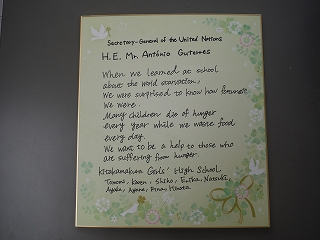 Secretary-General of the United Nations
H.E. Mr. António Guterres
When we learned at school
about the world starvation,
We were surprised to know how
We were.
Many children die of hunger
every year while we waste food
every day.
We want to be a help to those who
are suffering from hunger.
Kitakamakura Girls' High School
Tomomi, Karen, Shiho, Erika, Natsuki,
Ayaka, Ayane, Rina, Hinata